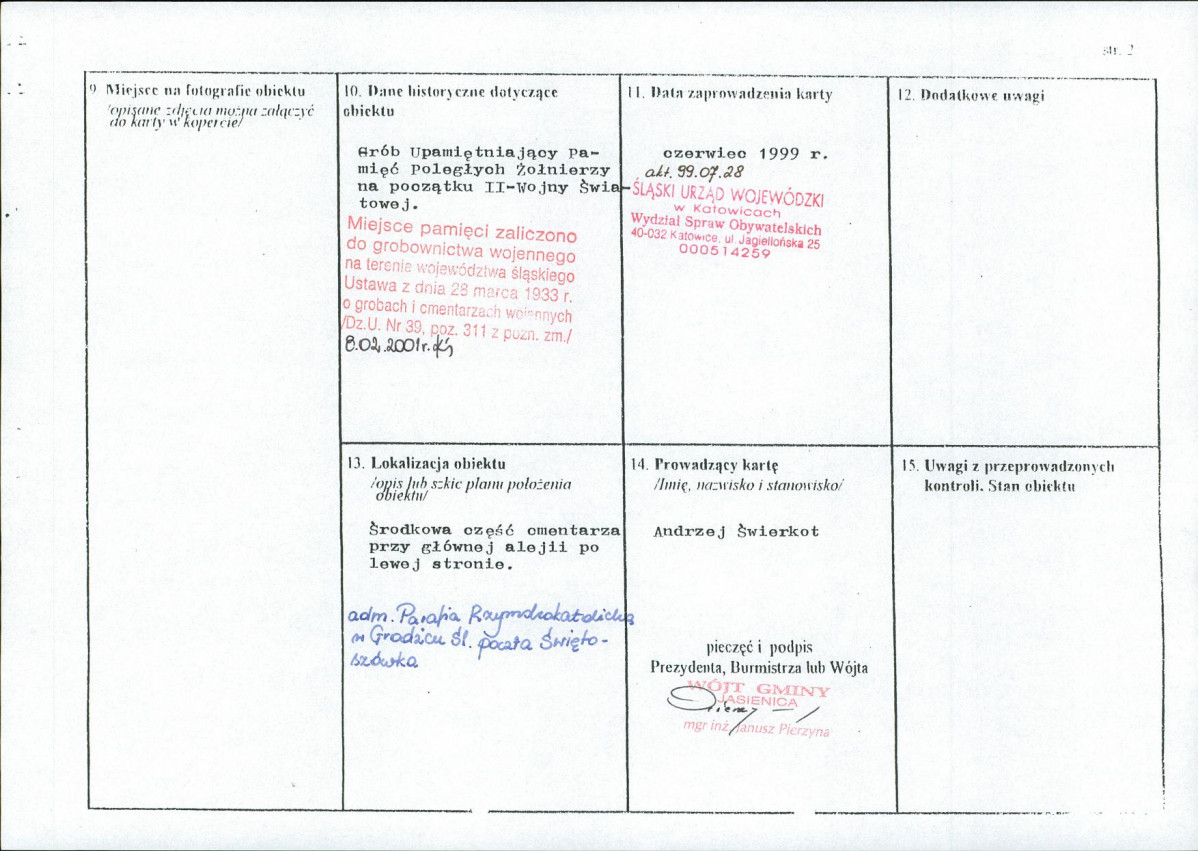 str. 2
9 Miejsce na fotografie obiektu
/opisane zdjęcia można załączyć
do karty w kopercie/
10. Dane historyczne dotyczące
obiektu
Grób Upamiętniający Pa-
mięć Poległych Żołnierzy
na początku II-Wojny Świa-
towej.
Miejsce pamięci zaliczono
do grobownictwa wojennego
na terenie województwa śląskiego
Ustawa z dnia 28 marca 1933 r.
o grobach i cmentarzach wojennych
/Dz.U. Nr 39, poz. 311 z pozn. zm./
8.02.2001r.
11. Data zaprowadzenia karty
czerwiec 1999 r.
akt. 99.07.28
ŚLĄSKI URZĄD WOJEWÓDZKI
w Katowicach
Wydział Spraw Obywatelskich
40-032 Katowice, ul. Jagiellońska 25
000514259
12. Dodatkowe uwagi
13. Lokalizacja obiektu
/opis lub szkic planu położenia
obiektu/
Środkowa część cmentarza
przy głównej alejii po
lewej stronie.
adm. Parafia Rzymskokatolicka
w Grodźcu Śl. poczta Święto-
szówka
14. Prowadzący kartę
/Imię, nazwisko i stanowisko/
Andrzej Świerkot
pieczęć i podpis
Prezydenta, Burmistrza lub Wójta
WÓJT GMINY
JASIENICA
mgr inż. Janusz Pierzyna
15. Uwagi z przeprowadzonych
kontroli. Stan obiektu